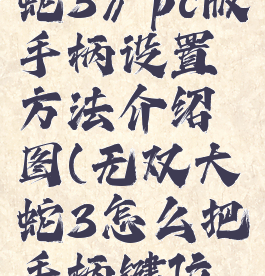 蛇3》pc版
手柄设置
方法介绍
图(无双大
蛇3怎么把
手柄键位